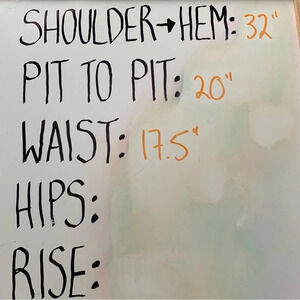 SHOULDER→HEM: 32"
PIT TO PIT: 20"
WAIST: 17.5"
HIPS:
RISE: